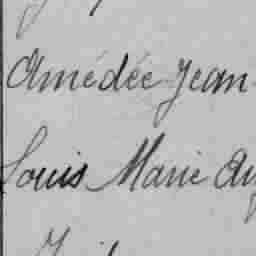 Amédée Jean
Louis Marie